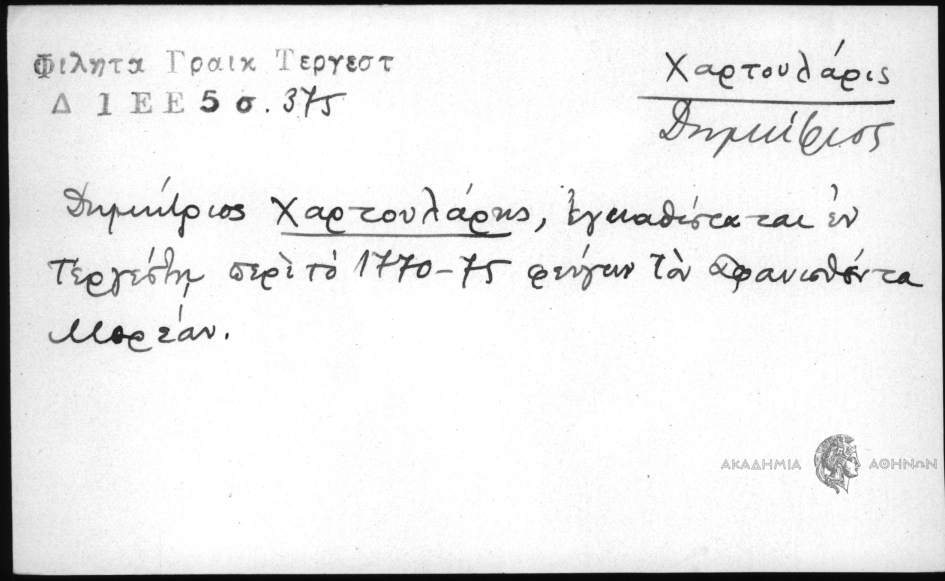 Φιλητα Γραικ Τεργεστ
Δ 1 Ε Ε 5 σ. 375
Χαρτουλάρις
Δημήτριος
Δημήτριος Χαρτουλάρης, ἐγκαθίσταται ἐν
Τεργέστῃ περὶ τὸ 1770-75 φεύγων τὸν ἀφανισθέντα
Μορέαν.
ΑΚΑΔΗΜΙΑ ΑΘΗΝΩΝ